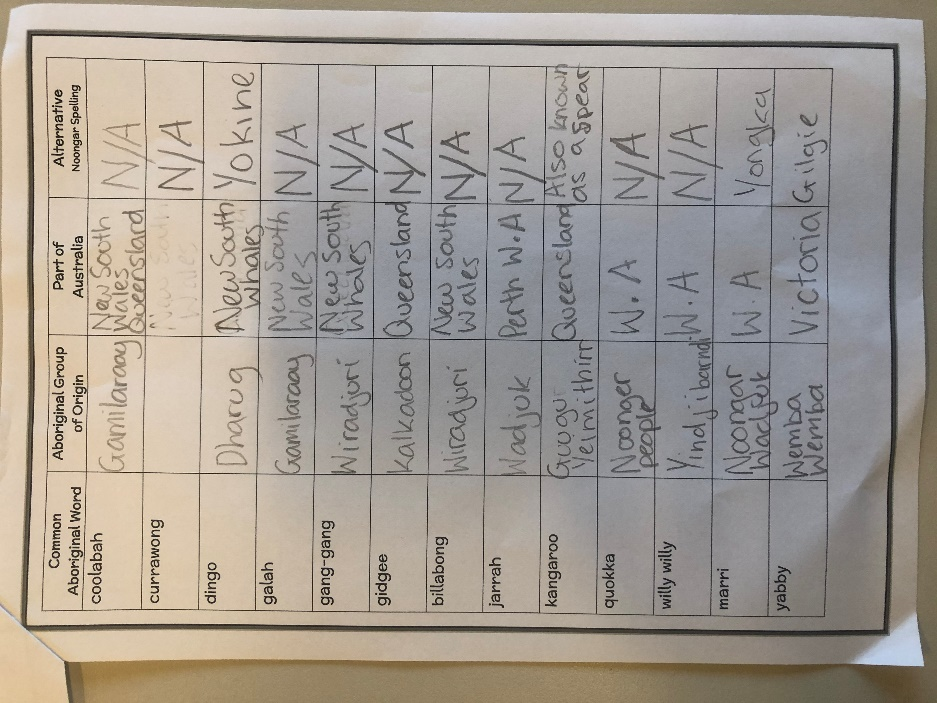 Common
Aboriginal Word
Aboriginal Group
of Origin
Part of
Australia
Alternative
Noongar Spelling
coolabah
Gamilaraay
New South
Wales
Queensland
N/A
currawong
New South
Wales
N/A
dingo
Dharug
New South
Whales
Yokine
galah
Gamilaraay
New South
Wales
N/A
gang-gang
Wiradjuri
New South
Whales
N/A
gidgee
Kalkadoon
Queensland
N/A
billabong
Wiradjuri
New South
Wales
N/A
jarrah
Wadjuk
Perth W.A
N/A
kangaroo
Queensland
Also known
as a spear
quokka
Noonger
people
W.A
N/A
willy willy
Yindjibarndi
W.A
N/A
marri
Noongar
Wadjuk
W.A
Yongka
yabby
Wemba
Wemba
Victoria
Gilgie